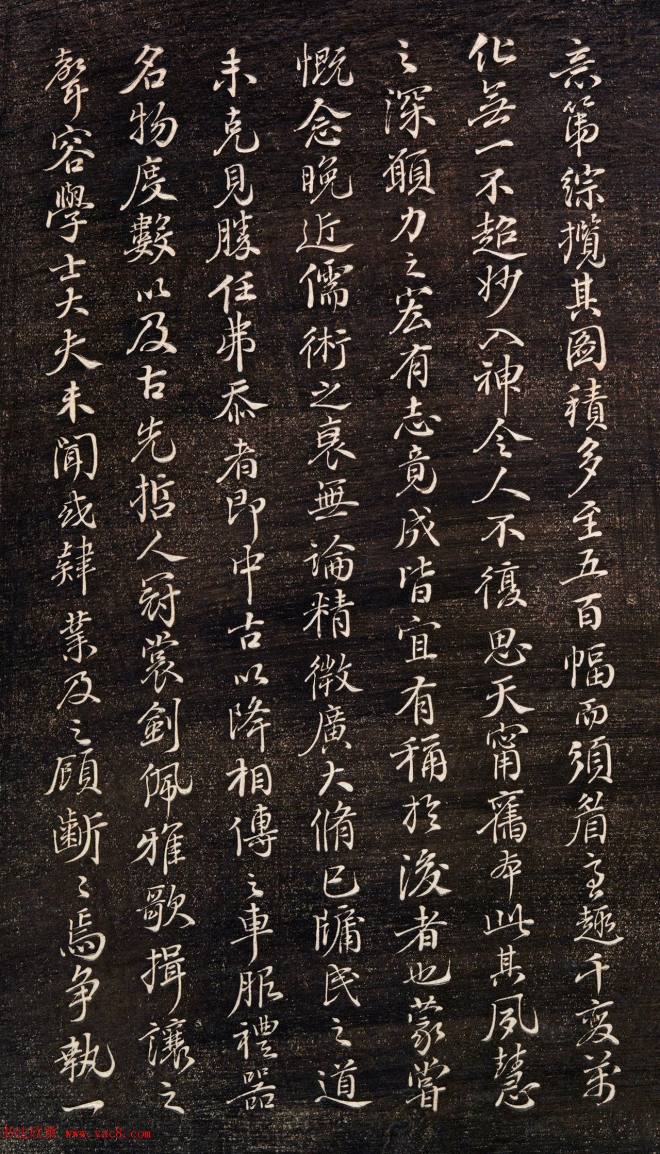 意第綜攬其圖積多至五百幅而須眉意趣千變萬
化無一不超妙入神令人不復思天甯舊本此其夙慧
之深願力之宏有志竟成皆宜有稱於後者也蒙嘗
慨念晚近儒術之衰無論精微廣大脩己牖民之道
未克見勝任弗忝者即中古以降相傳之車服禮器
名物度數以及古先哲人冠裳劍佩雅歌揖讓之
聲容學士大夫未聞或肄業及之顧齗〻焉爭執一
www.yac8.com